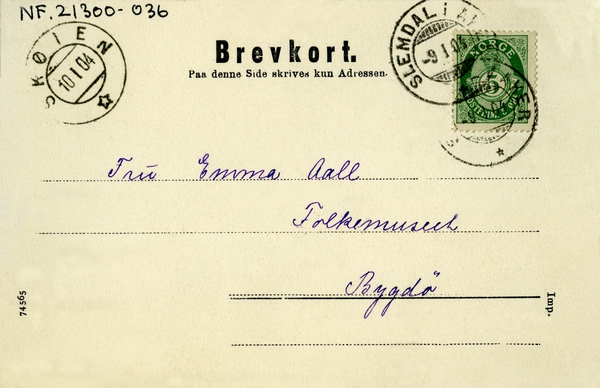 NF.21300-036
SKØIEN
10 I 04
Brevkort.
Paa denne Side skrives kun Adressen.
SLEMDAL I AKER
-9 I 04
NORGE
5
Fru Emma Aall
Folkemuseet
Bygdö
74565
Imp.